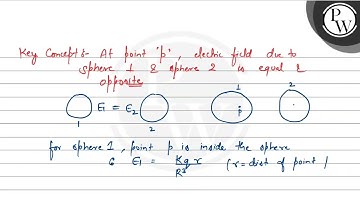 PW
Key Concept:- At point 'p', electric field due to
sphere 1 & sphere 2 is equal &
opposite
E₁ = E₂
1
2
1
p
for sphere 1, point p is inside the sphere
E₁ = Kq r / R³ (r = dist of point